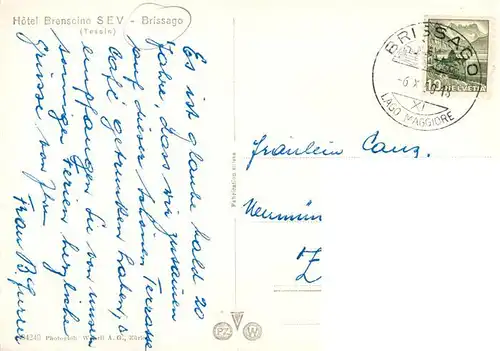 Hôtel Brenscino SEV - Brissago
(Tessin)
Es ist glaube bald 20
Jahre, dass wir zusammen
auf dieser schönen Terrasse
Café getrunken haben,
empfangen Sie von unsern
sonnigen Ferien herzliche
Grüsse von Ihrer
Frau B. Furrer
BRISSAGO
-6.X
XI
LAGO MAGGIORE
HELVETIA
Fräulein Canz.
Neumün
Z
Fabrication suisse
PZ
W
Photogloh W A. G., Züri